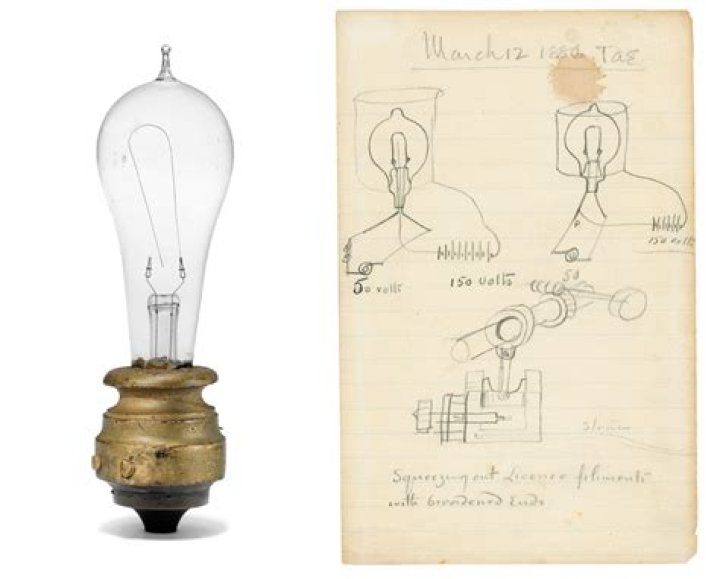 March 12 1886 TAE
50 volts
150 volts
150 volts
50
Squeezing out filiments
with broadened Ends